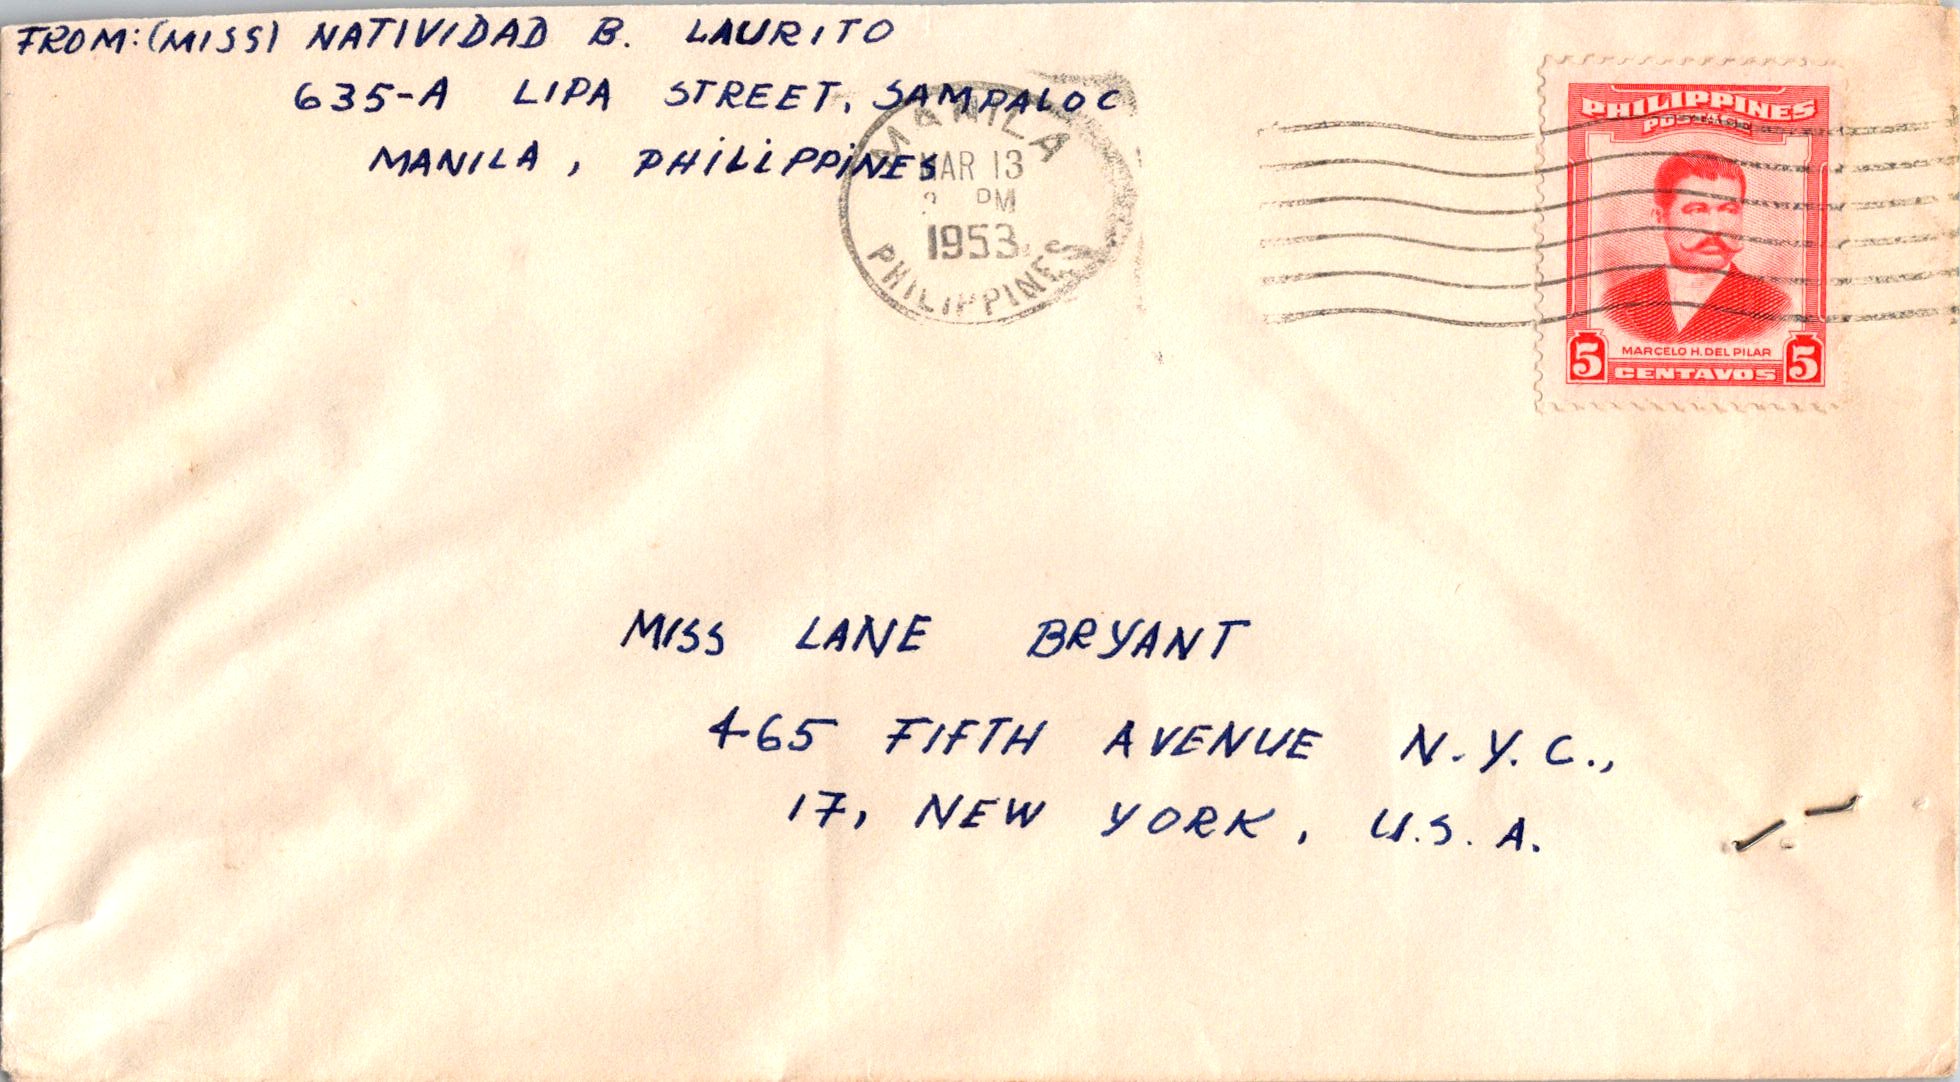 FROM: (MISS) NATIVIDAD B. LAURITO
635-A LIPA STREET, SAMPALOC
MANILA, PHILIPPINES
MANILA
MAR 13
PM
1953
PHILIPPINES
PHILIPPINES
POSTAGE
MARCELO H. DEL PILAR
5 CENTAVOS 5
MISS LANE BRYANT
465 FIFTH AVENUE N.Y.C.,
17, NEW YORK, U.S.A.